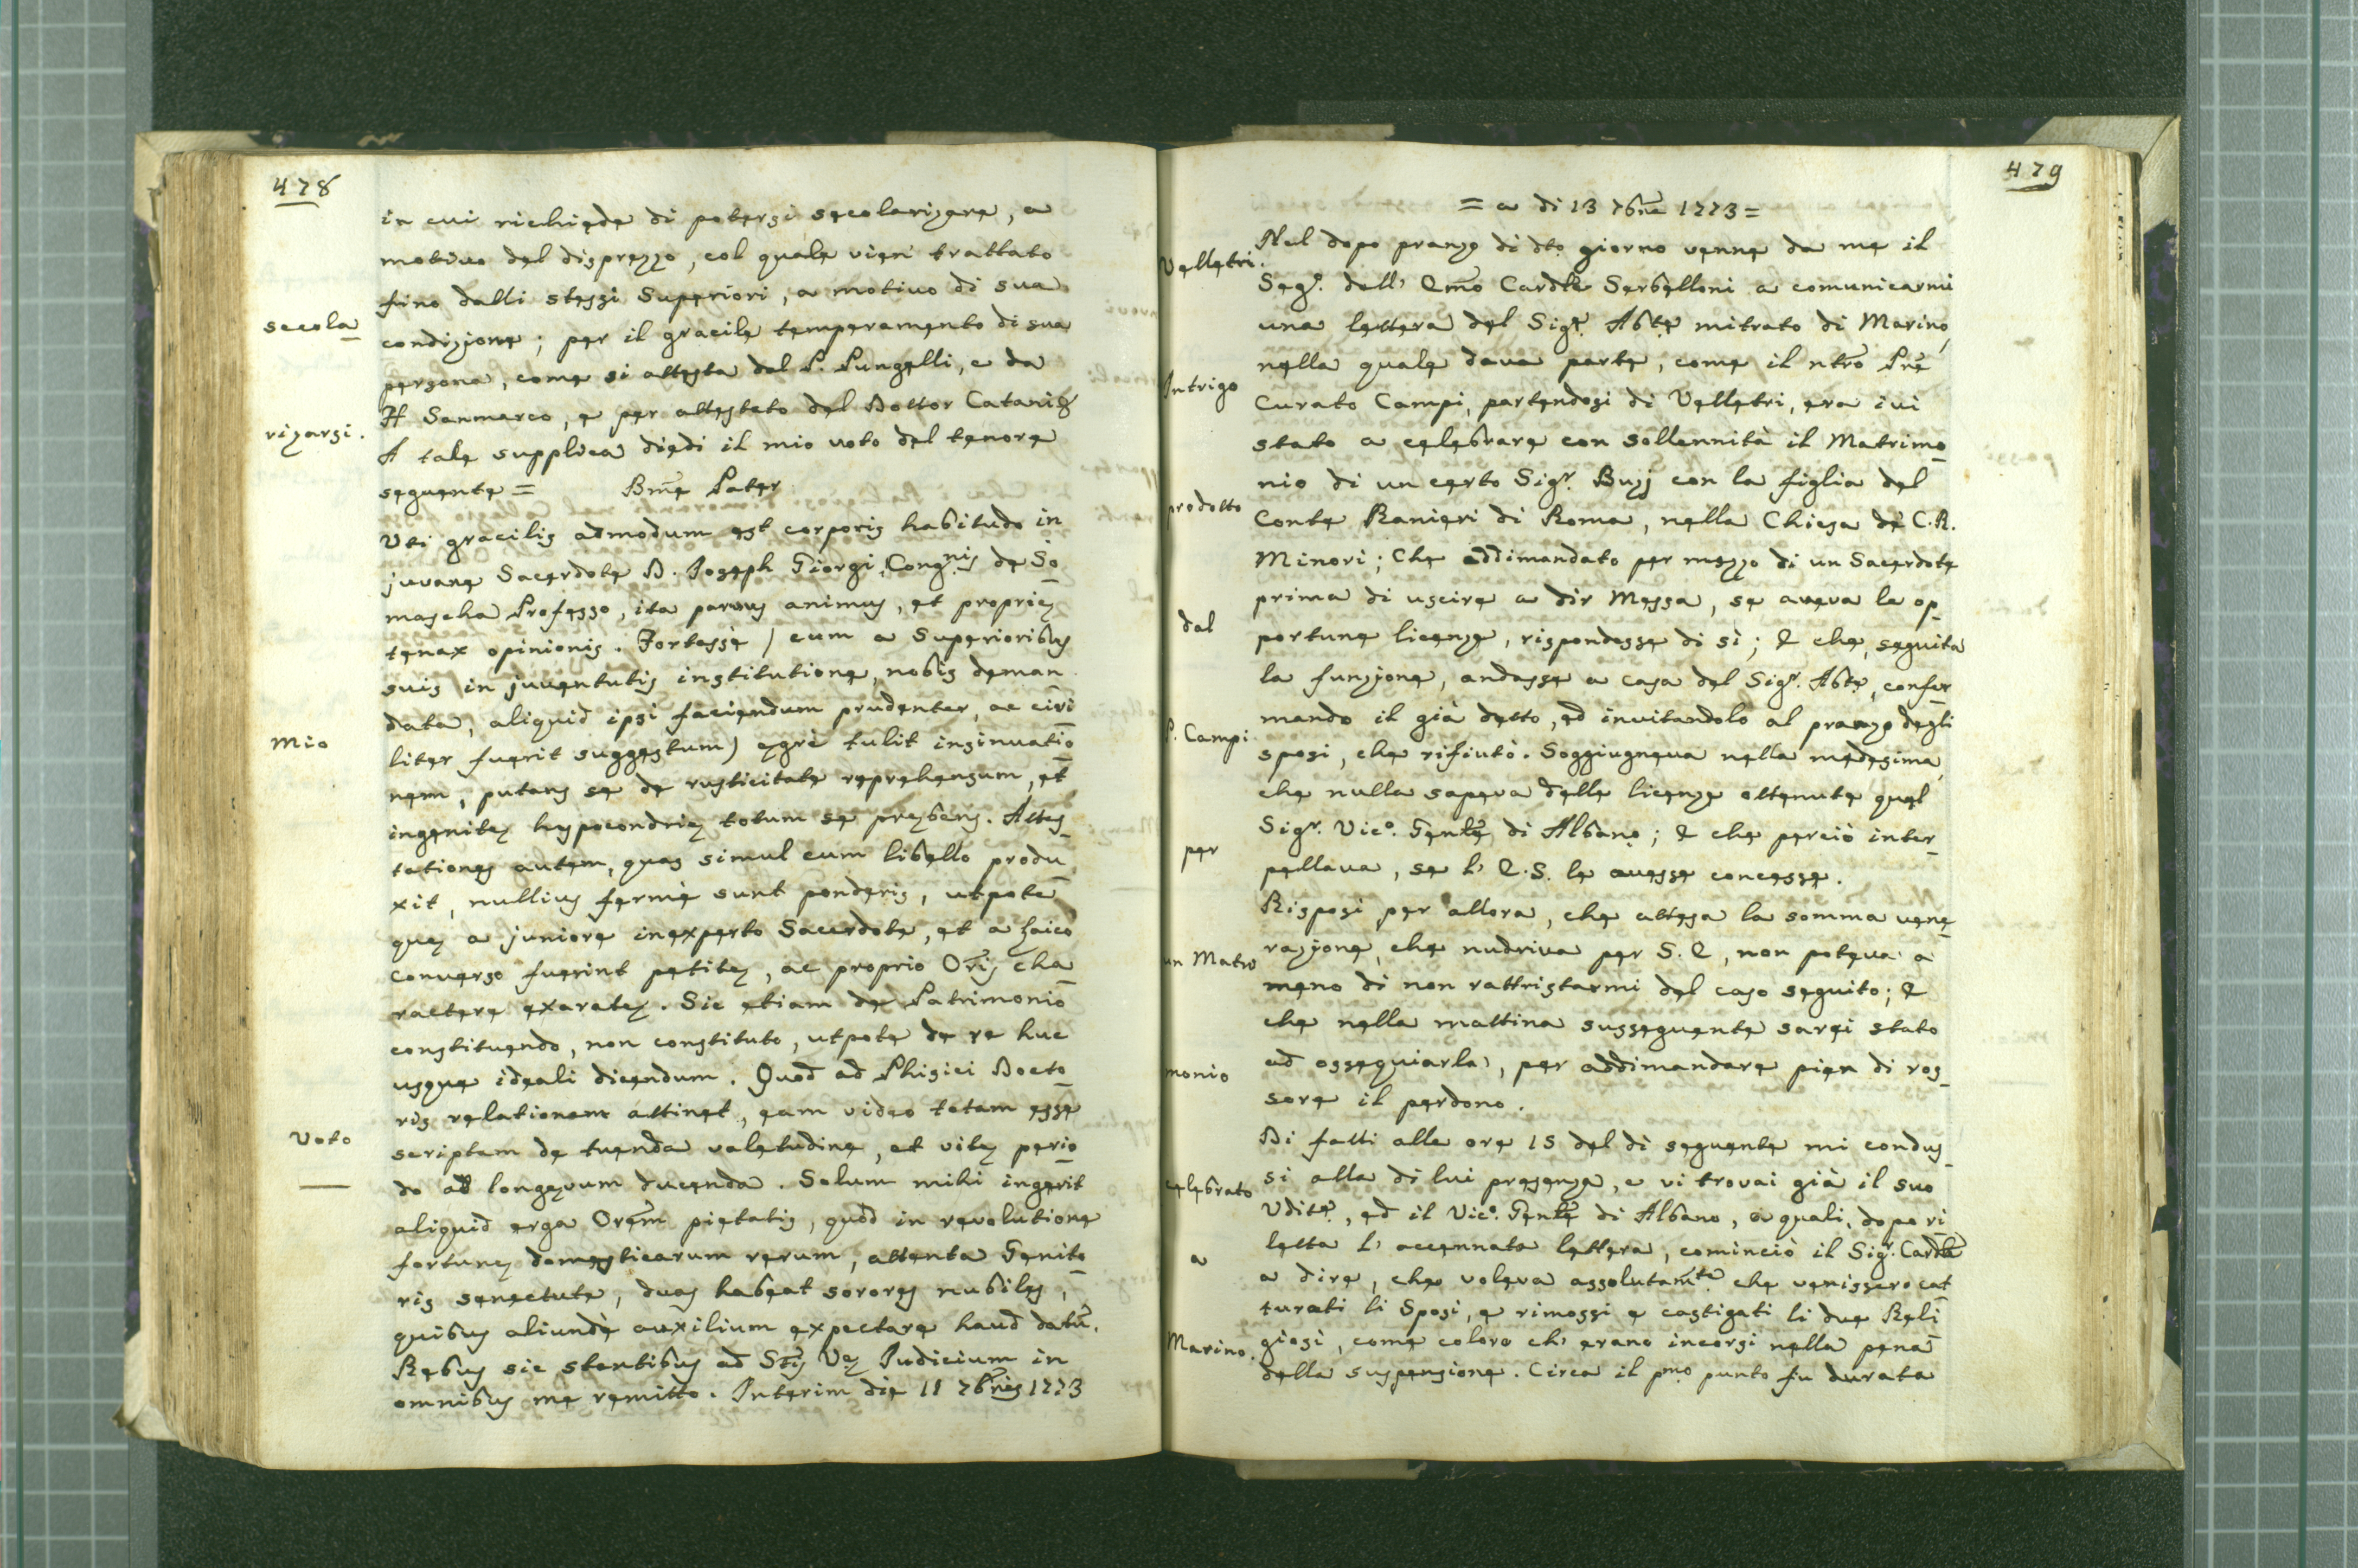 478
in cui richiede di potersi secolarizare, a
motivo del disprezzo, col quale vien trattato
fino dalli stessi Superiori, a motivo di sua
secola
condizione; per il gracile temperamento di sua
persona, come si attesta dal P. Pungelli, e da
H Sanmarco, e per attestato del Dottor Catani &
rizarsi.
A tale supplica diedi il mio voto del tenore
seguente = Bm̃e Pater
Uti gracilis admodum est corporis habitudo in
juvene Sacerdote D. Joseph Giorgi, Congr.nis de So
mascha Professo, ita parvus animus, et propriæ
tenax opinionis. Fortassè (cum a Superioribus
suis in juventutis institutione, nobis deman
data, aliquid ipsi faciendum prudenter, ac civi
Mio
liter fuerit suggestum) ægrè tulit insinuatio
nem, putans se de rusticitate reprehensum, et
ingenitæ hypocondriæ totum se præbens. Attes
tationes autem, quas simul cum libello produ
xit, nullius fermè sunt ponderis, utpote
quæ a juniore inexperto Sacerdote, et a Laico
converso fuerint petitæ, ac proprio Oris̃ cha
ractere exaratæ. Sic etiam de Patrimonio
constituendo, non constituto, utpote de re huc
usque ideali dicendum. Quod ad Phisici Docto
ris relationem attinet, eam video totam esse
Voto
scriptam de tuenda valetudine, et vitæ perio
do ad longævum ducenda. Solum mihi ingerit
aliquid erga Orem̃ pietatis, quòd in revolutione
fortunæ domesticarum rerum, attenta Genito
ris senectute, duas habeat sorores nubiles,
quibus aliundè auxilium expectare haud datũ.
Rebus sic stantibus ad Stis̃ Væ Judicium in
omnibus me remitto. Interim die 11 7bris̃ 1773
479
= a di 13 7bre̅ 1773 =
Velletri.
Nel dopo pranzo di dto giorno venne da me il
Segr. dell' Em̃o Cardle Serbelloni a comunicarmi
una lettera del Sigr. Abte mitrato di Marino,
Intrigo
nella quale dava parte, come il ntro Pñe
Curato Campi, partendosi di Velletri, era ivi
stato a celebrare con sollennità il Matrimo
nio di un certo Sigr. Buzj con la figlia del
prodotto
Conte Ranieri di Roma, nella Chiesa de C. R.
Minori; Che addimandato per mezzo di un Sacerdote
prima di uscire a dir Messa, se aveva le op
dal
portune licenze, rispondesse di sì; E che, seguita
la funzione, andasse a casa del Sigr. Abte, confer
mando il già detto, ed invitandolo al pranzo degli
P. Campi
sposi, che rifiutò. Soggiugneva nella medesima,
che nulla sapeva delle licenze ottenute quel
Sigr. Vico. Gente di Albano; E che perciò inter
per
pellava, se l' E. S. le avesse concesse.
Risposi per allora, che attesa la somma vene
un Matri
razione, che nudriva per S. E, non poteva a
meno di non rattristarmi del caso seguito; E
che nella mattina susseguente sarei stato
monio
ad ossequiarla, per addimandare pien di ros
sore il perdono.
Di fatti alle ore 15 del dì seguente mi condus
celebrato
si alla di lui presenza, e vi trovai già il suo
Udite, ed il Vico. Gente di Albano, a quali, dopo ri
a
letta l' accennata lettera, cominciò il Sigr. Cardle
a dire, che voleva assolutamte che venissero cat
turati li Sposi, e rimossi e castigati li due Reli
Marino.
giosi, come coloro ch' erano incorsi nella pena
della suspensione. Circa il pmo punto fu durata